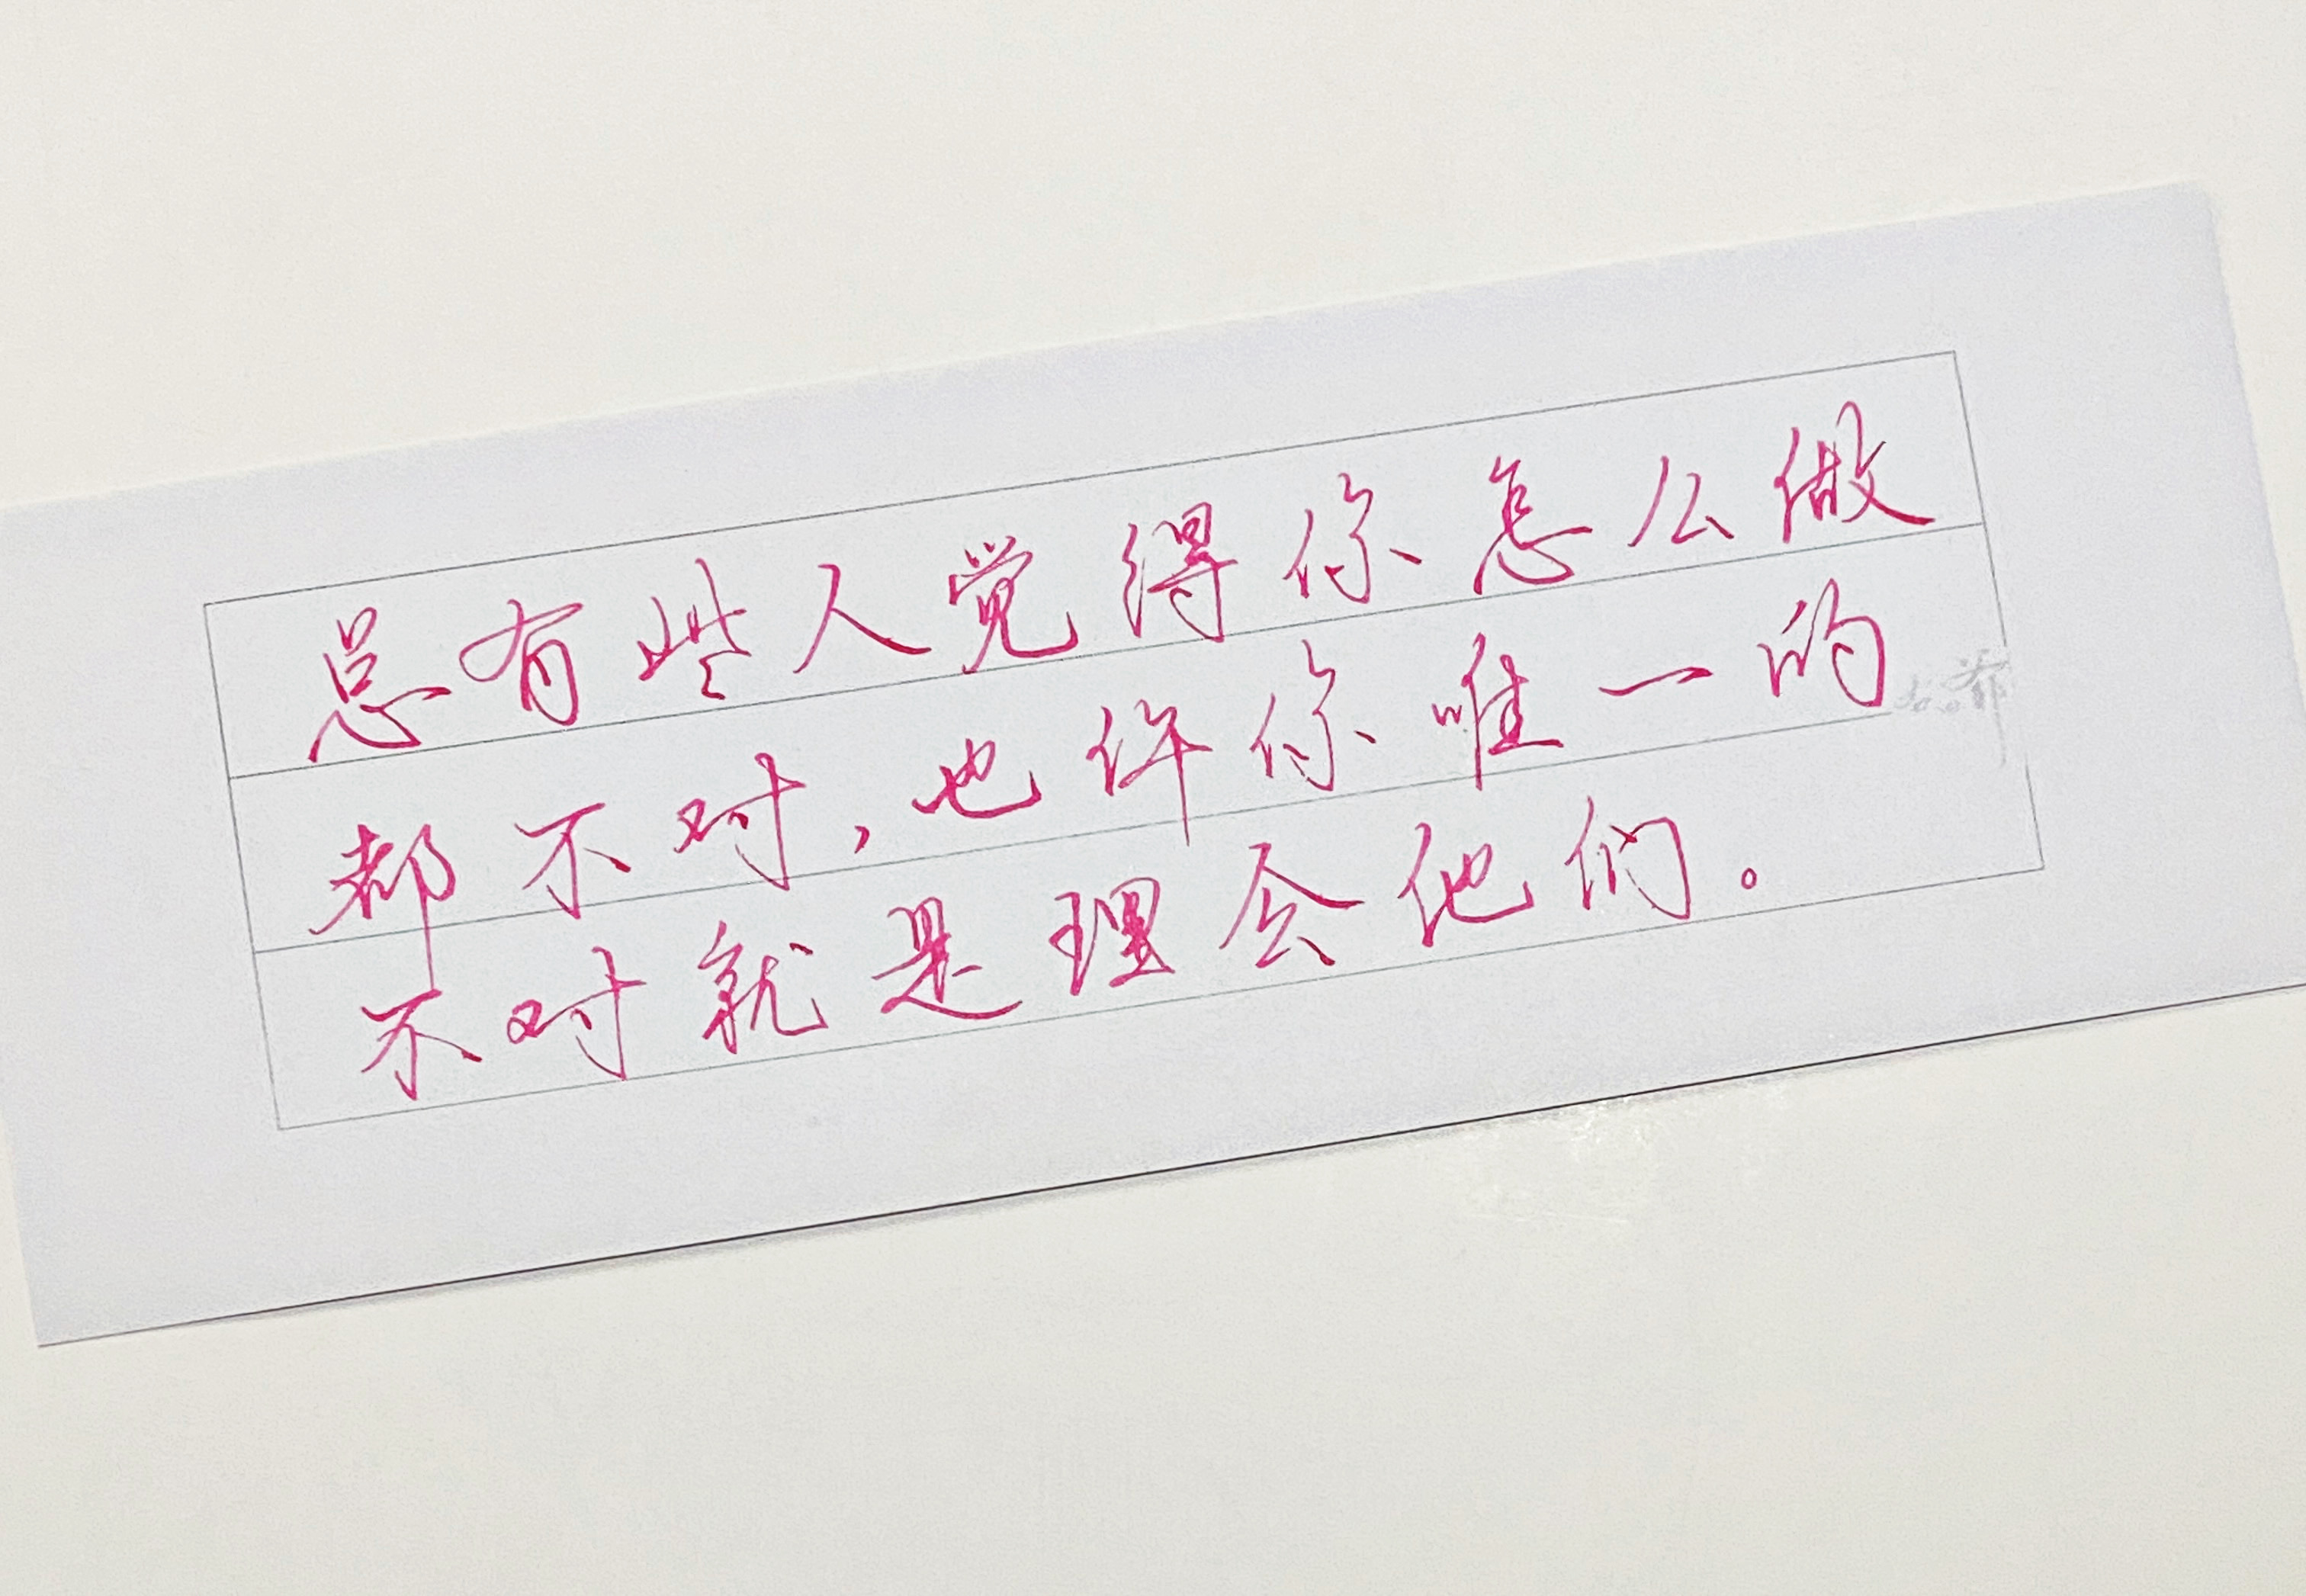 总有些人觉得你怎么做
都不对，也许你唯一的
不对就是理会他们。